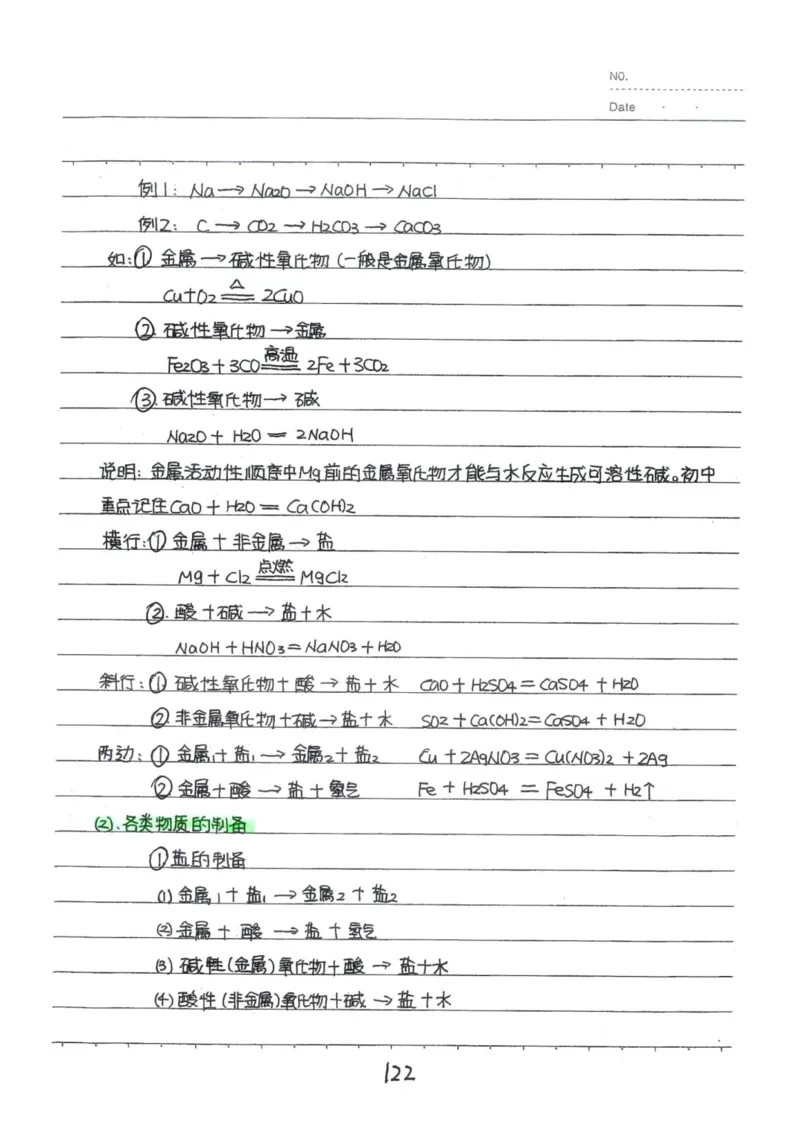 NO.
Date
例1: Na→Na2O→NaOH→NaCl
例2: C→CO2→H2CO3→CaCO3
如:① 金属→碱性氧化物(一般是金属氧化物)
Cu+O2 =△= 2CuO
②.碱性氧化物→金属
Fe2O3+3CO =高温= 2Fe+3CO2
③.碱性氧化物→碱
Na2O+H2O=2NaOH
说明:金属活动性顺序中Mg前的金属氧化物才能与水反应生成可溶性碱。初中
重点记住CaO+H2O=Ca(OH)2
横行:①金属+非金属→盐
Mg+Cl2 =点燃= MgCl2
②.酸+碱→盐+水
NaOH+HNO3=NaNO3+H2O
斜行:①碱性氧化物+酸→盐+水 CaO+H2SO4=CaSO4+H2O
②非金属氧化物+碱→盐+水 SO2+Ca(OH)2=CaSO4+H2O
两边:①金属1+盐1→金属2+盐2 Cu+2AgNO3=Cu(NO3)2+2Ag
②金属+酸→盐+氢气 Fe+H2SO4=FeSO4+H2↑
(2).各类物质的制备
①盐的制备
(1)金属1+盐1→金属2+盐2
(2)金属+酸→盐+氢气
(3)碱性(金属)氧化物+酸→盐+水
(4)酸性(非金属)氧化物+碱→盐+水
122